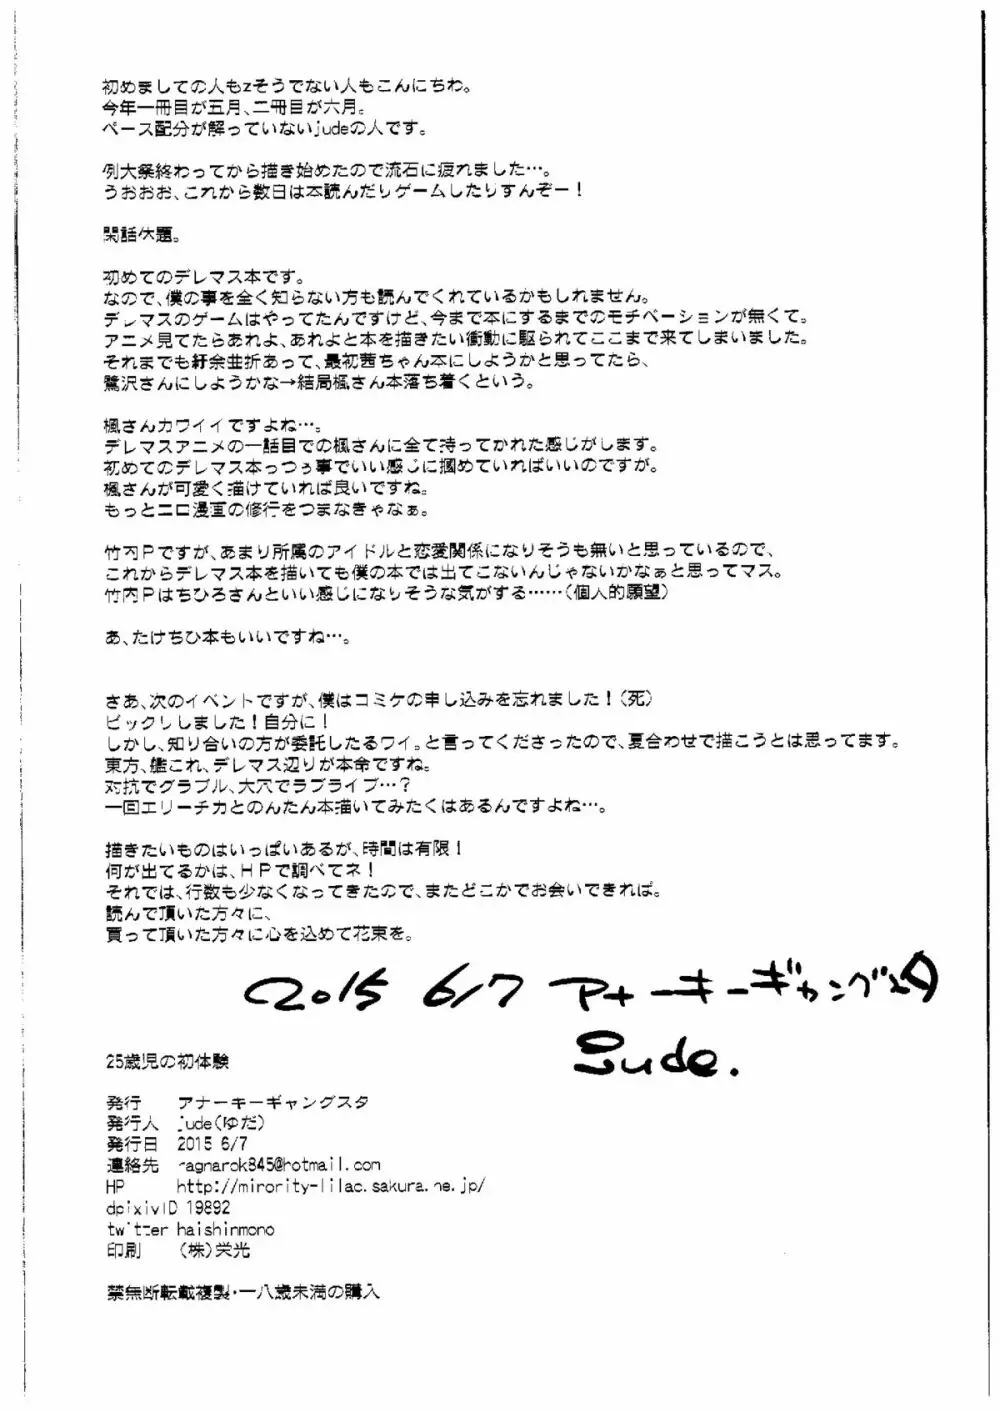 初めましての人もzそうでない人もこんにちわ。
今年一冊目が五月、二冊目が六月。
ペース配分が解っていないjudeの人です。
例大祭終わってから描き始めたので流石に疲れました…。
うおおお、これから数日は本読んだりゲームしたりすんぞー！
閑話休題。
初めてのデレマス本です。
なので、僕の事を全く知らない方も読んでくれているかもしれません。
デレマスのゲームはやってたんですけど、今まで本にするまでのモチベーションが無くて。
アニメ見てたらあれよ、あれよと本を描きたい衝動に駆られてここまで来てしまいました。
それまでも紆余曲折あって、最初茜ちゃん本にしようかと思ってたら、
鷺沢さんにしようかな→結局楓さん本落ち着くという。
楓さんカワイイですよね…。
デレマスアニメの一話目での楓さんに全て持ってかれた感じがします。
初めてのデレマス本っつぅ事でいい感じに掴めていればいいのですが。
楓さんが可愛く描けていれば良いですね。
もっとエロ漫画の修行をつまなきゃなぁ。
竹内Ｐですが、あまり所属のアイドルと恋愛関係になりそうも無いと思っているので、
これからデレマス本を描いても僕の本では出てこないんじゃないかなぁと思ってマス。
竹内Ｐはちひろさんといい感じになりそうな気がする……（個人的願望）
あ、たけちひ本もいいですね…。
さあ、次のイベントですが、僕はコミケの申し込みを忘れました！（死）
ビックリしました！自分に！
しかし、知り合いの方が委託したるワイ。と言ってくださったので、夏合わせで描こうとは思ってます。
東方、艦これ、デレマス辺りが本命ですね。
対抗でグラブル、大穴でラブライブ…？
一回エリーチカとのんたん本描いてみたくはあるんですよね…。
描きたいものはいっぱいあるが、時間は有限！
何が出てるかは、ＨＰで調べてネ！
それでは、行数も少なくなってきたので、またどこかでお会いできれば。
読んで頂いた方々に、
買って頂いた方々に心を込めて花束を。
2015 6/7 アナーキーギャングスタ
jude.
25歳児の初体験
発行 アナーキーギャングスタ
発行人 jude（ゆだ）
発行日 2015 6/7
連絡先 ragnarok845@hotmail.com
HP http://minority-lilac.sakura.ne.jp/
dpixivID 19892
twitter haishinmono
印刷 （株）栄光
禁無断転載複製・一八歳未満の購入